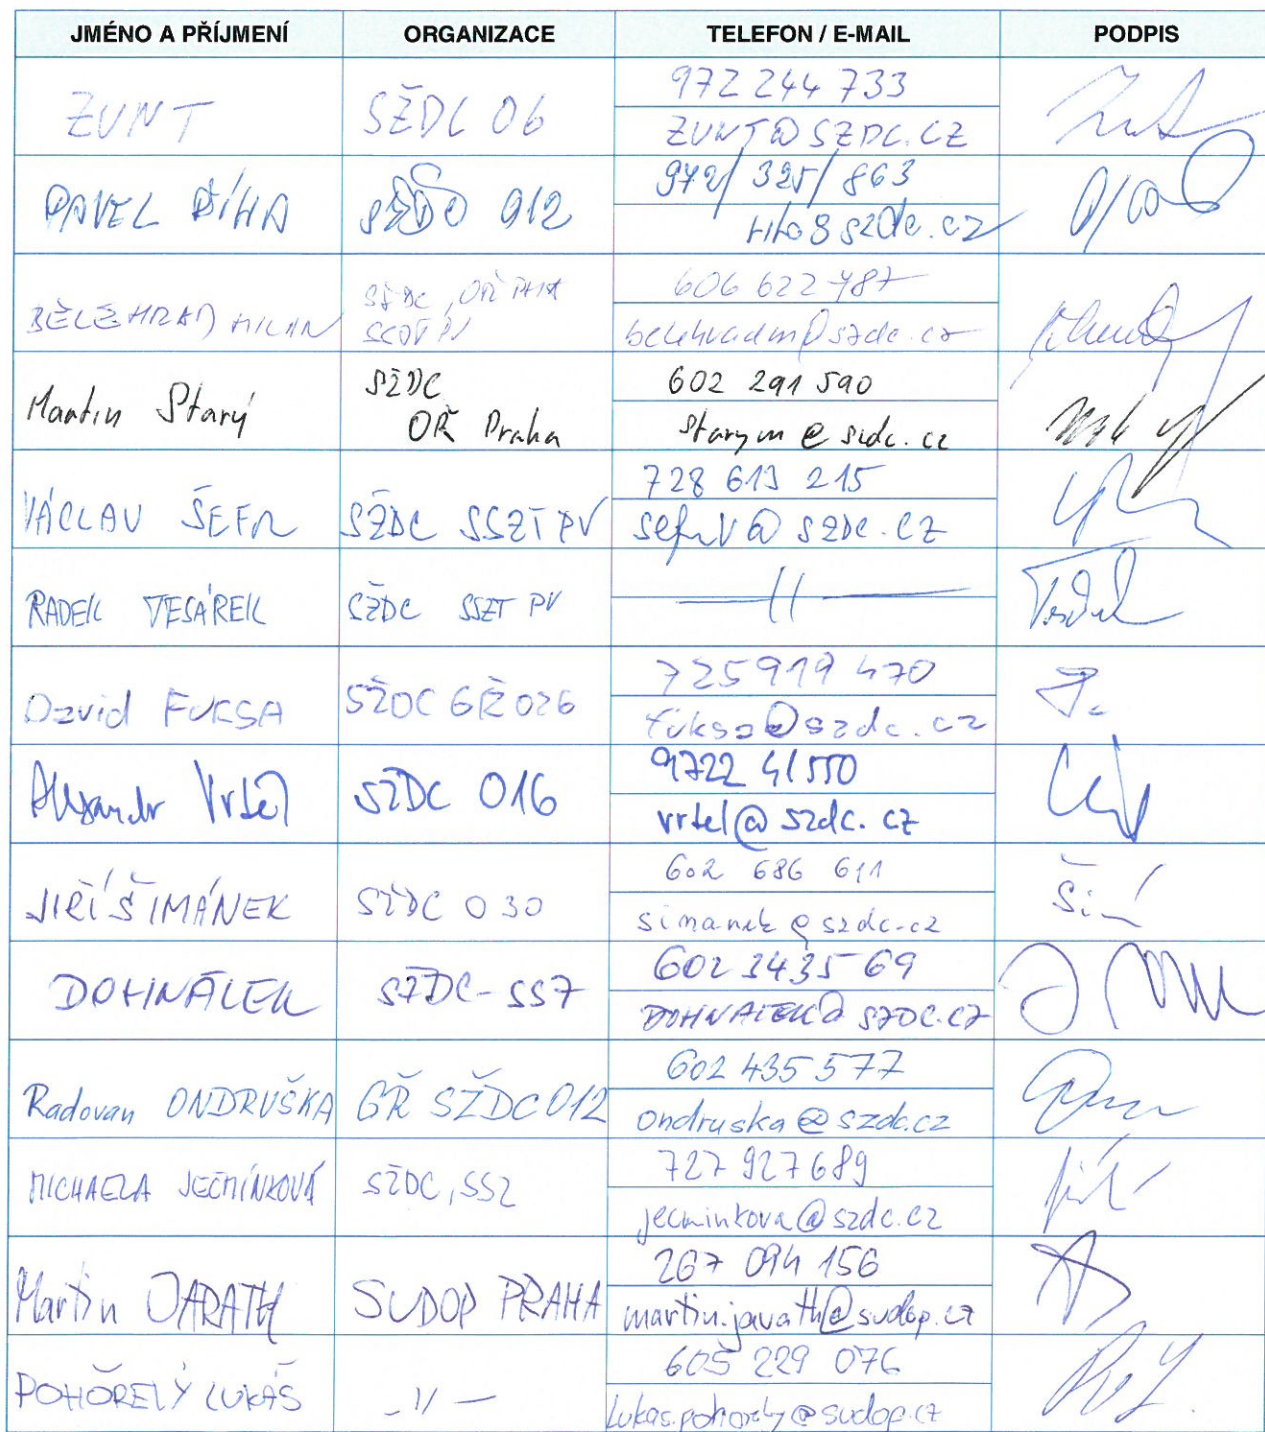 JMÉNO A PŘÍJMENÍ ORGANIZACE TELEFON / E-MAIL PODPIS
ZUNT SŽDC 06 972 244 733
ZUNT@SZDC.CZ
PAVEL ŘÍHA 012 972/ 325/ 863
szdc.cz
BĚLEHRAD MILAN SŽDC, OŘ PHA 606 622 787
belehradm@szdc.cz
Martin Starý SŽDC 602 291 590
OŘ Praha starym@szdc.cz
VÁCLAV ŠEFR SŽDC SSZT PV 728 613 215
sefrv@szdc.cz
RADEK TESÁREK SŽDC SSZT PV —//—
David FUKSA SŽDC GŘ 026 725 919 470
fuksa@szdc.cz
Alexandr Vrtěl SŽDC 016 9722 41550
vrtel@szdc.cz
JIŘÍ ŠIMÁNEK SŽDC 030 602 686 611
simanek@szdc.cz
DOHNÁLEK SŽDC-SSZ
DOHNALEK@SZDC.CZ
Radovan ONDRUŠKA GŘ SŽDC 012 602 435 577
ondruska@szdc.cz
MICHAELA JEČMÍNKOVÁ SŽDC, SSZ 727 927 689
jecminkova@szdc.cz
Martin JAVATH SUDOP PRAHA 267 094 156
martin.javath@sudop.cz
POHOŘELÝ LUKÁŠ -//- 605 229 076
lukas.pohorely@sudop.cz